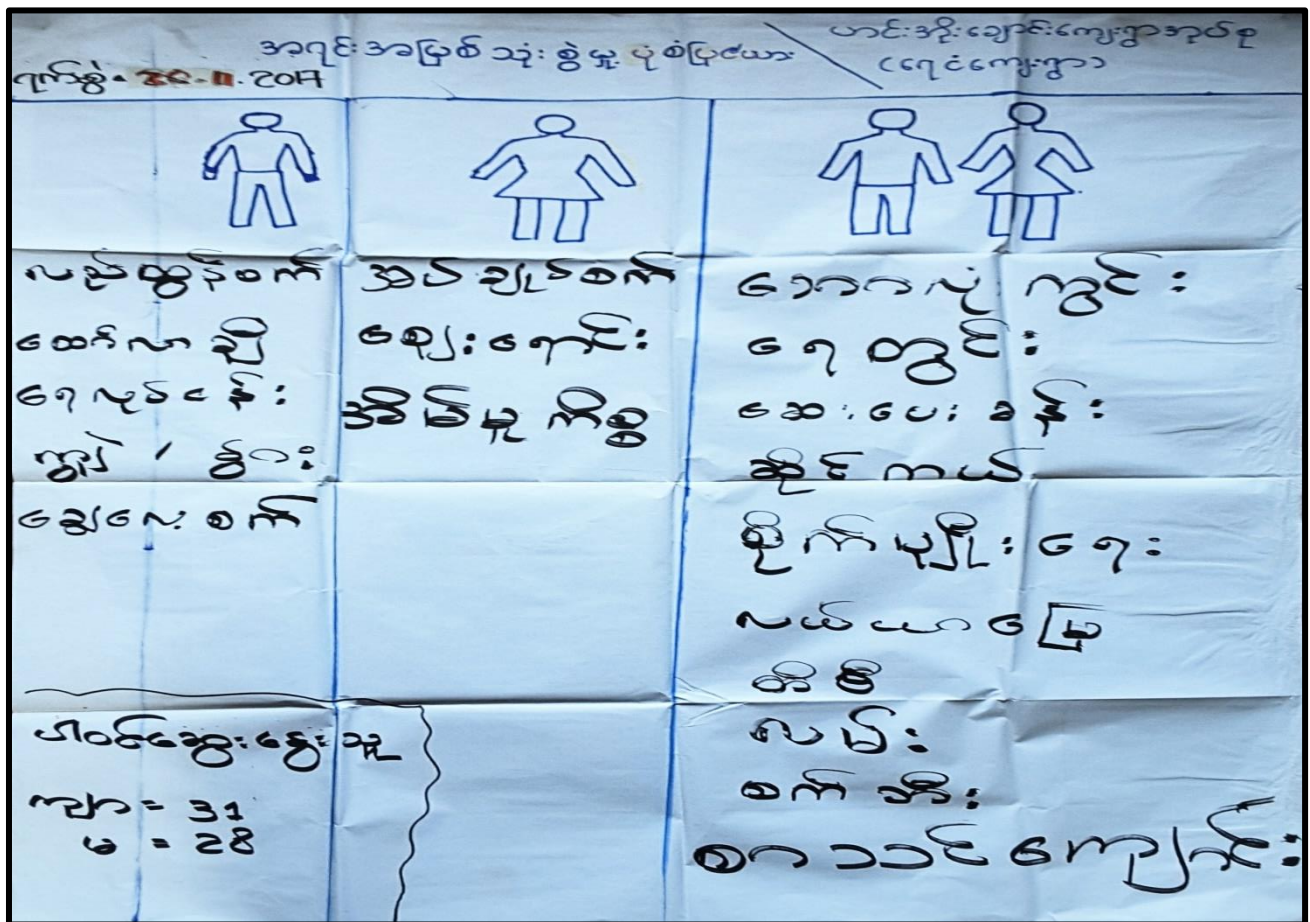 အရင်းအမြစ် သုံးစွဲမှု ပုံစံပြဇယား
ဟင်းအိုးချောင်းကျေးရွာအုပ်စု
(ရေငံကျေးရွာ)
ရက်စွဲ- 20-11-2017
လည်ထွန်စက်
ထော်လာဂျီ
ရေလုပ်ငန်း
ကျွဲ / နွား
ခြွေလှေ့စက်
အပ်ချုပ်စက်
စျေးရောင်း
အိမ်မှုကိစ္စ
ဘောလုံးကွင်း
ရေတွင်း
ဆေးပေးခန်း
ဆိုင်ကယ်
စိုက်ပျိုးရေး
လယ်ယာမြေ
တီဗီ
လမ်း
စက်ဘီး
စာသင်ကျောင်း
ပါဝင်ဆွေးနွေးသူ
ကျား = 31
မ = 28